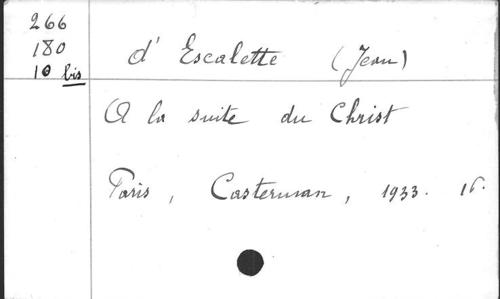 266
180
10 bis
d' Escalette (Jean)
A la suite du Christ
Paris, Casterman, 1933. 16.